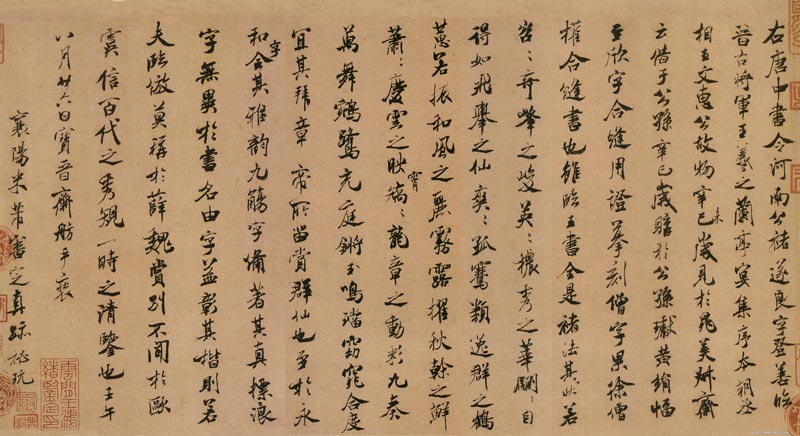 右唐中書令河南公褚遂良字登善臨
晉右將軍王羲之蘭亭宴集序本朝丞
相王文惠公故物辛巳未歲見於晁美叔齋
云借于公孫辛巳歲購於公孫瓛黃絹幅
至欣字合縫用證摹刻僧字果徐僧
權合縫書也雖臨王書全是褚法其狀若
岩岩奇峰之峻英英穠秀之華翩翩自
得如飛舉之仙爽爽孤騫類逸群之鶴
蕙若振和風之麗霧露擢秋幹之鮮
蕭蕭慶雲之映霄矯矯龍章之動彩九奏
萬舞鵷鷺充庭鏘玉鳴璫窈窕合度
宜其拜章帝所留賞群仙也至於永
和字全其雅韵九觴字備著其真標浪
字無異於書名由字益彰其楷則若
夫臨倣莫稱於薛魏賞別不聞於歐
虞信百代之秀規一時之清鑒也壬午
八月廿六日寶晉齋舫手裝
襄陽米芾審定真跡秘玩